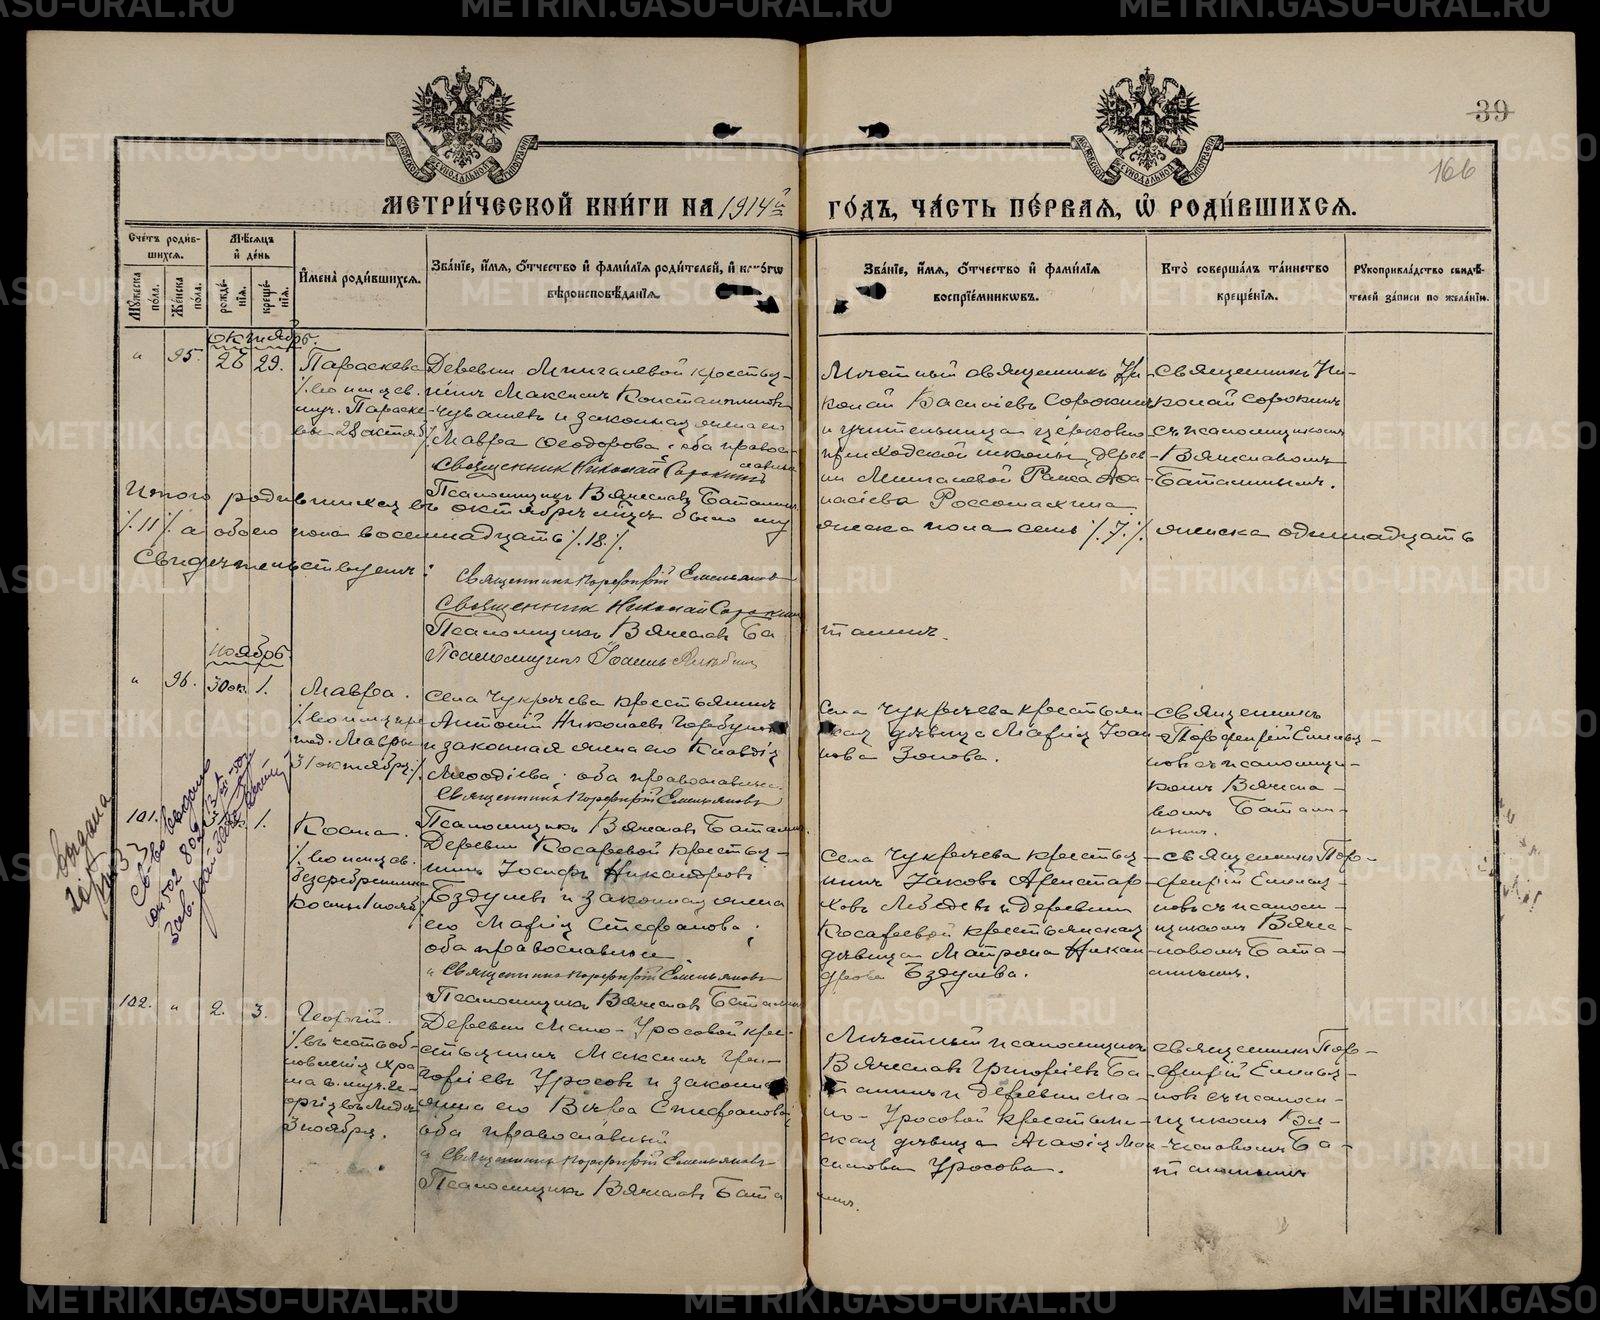 39
166
МЕТРИ́ЧЕСКОЙ КНИ́ГИ НА 1914й ГО́ДЪ, ЧА́СТЬ ПЕ́РВАЯ, Ѿ РОДИ́ВШИХСЯ.
Сче́тъ роди́в-
шихся.
Мꙋ́жеска по́ла.
Же́нска по́ла.
Мѣ́сяцъ
и҆ де́нь
рожде́-
нїя.
креще́-
нїя.
И҆мена̀ роди́вшихся.
Зва́нїе, и҆́мя, ѻ҆́тчество и҆ фами́лїя роди́телей, и҆
вѣроисповѣ́данїя.
Зва́нїе, и҆́мя, ѻ҆́тчество и҆ фами́лїя
воспрїе́мникѡвъ.
Кто̀ соверша́лъ та́инство
креще́нїя.
Рꙋкоприкла́дство свидѣ́-
телей за́писи по жела́нїю.
октябрь.
" 95. 28 29. Параскева
Деревни Мингалевой крестья-
нинъ Максимъ Константиновъ
Чувашевъ и законная жена его
Мавра Ѳеодорова; оба правос-
лавные
Священникъ Николай Сорокинъ
Псаломщикъ Вячеславъ Баташинъ
Мѣстный священникъ Ни-
колай Васильевъ Сорокинъ
и учительница церковно-
приходской школы дерев-
ни Мингалевой Раиса Аѳа-
насіева Россомахина.
Священникъ Ни-
колай Сорокинъ
съ псаломщикомъ
Вячеславомъ
Баташинымъ.
Итого родившихся въ октябрѣ мѣсяцѣ было му
жеска пола семь /.7./. женска одиннадцать
/.11/. а обоего пола восемнадцать /.18./.
Свидѣтельствуемъ:
Священникъ Порфирій Емельяновъ
Священникъ Николай Сорокинъ
Псаломщикъ Вячеславъ Ба
ташинъ.
Псаломщикъ Іоаннъ
ноябрь.
" 96. 30 ок. 1. Мавра.
31 октября./.
Села Чукреева крестьянинъ
Антоній Николаевъ
и законная жена его Клавдія
Меѳодіева; оба православные.
Священникъ Порфирій Емельяновъ
Псаломщикъ Вячеславъ Баташинъ.
Села Чукреева крестьян
ская дѣвица Марія Іоан
нова Зотова.
Священникъ
Порфирій Емелья-
новъ съ псаломщи-
комъ Вячесла-
вомъ Баташи-
нымъ.
101. 1. Косма.
безсребренника
Космы 1 ноября
Деревни Косаревой крестья-
нинъ Іосифъ Никандровъ
Бздулевъ и законная жена
его Марія Стефанова;
оба православные.
Священникъ Порфирій Емельяновъ
Псаломщикъ Вячеславъ Баташинъ
Села Чукреева крестья-
нинъ Іаковъ Аристар-
ховъ Лебедевъ и деревни
Косаревой крестьянская
дѣвица Матрона Никан
дрова Бздулева.
Священникъ Пор-
фирій Емелья-
новъ съ псалом-
щикомъ Вячес-
лавомъ Бата-
шинымъ.
102. " 2. 3. Георгій.
/.въ честь об-
новленія хра
ма в.муч. Ге-
оргія въ Лиддѣ
3 ноября.
Деревни Мало-Уросовой крес-
тьянинъ Максимъ Гри-
горіевъ Уросовъ и законная
жена его Вѣра Стефанова;
оба православные
Священникъ Порфирій Емельяновъ
Псаломщикъ Вячеславъ Бата
шинъ.
Мѣстный псаломщикъ
Вячеславъ Григоріевъ Ба-
ташинъ и деревни Ма-
ло-Уросовой крестьян-
ская дѣвица Агаѳія Мак
симова Уросова.
Священникъ Пор-
фирій Емелья-
новъ съ псалом-
щикомъ Вя-
чеславомъ Ба-
ташинымъ
выдана
METRIKI.GASO-URAL.RU